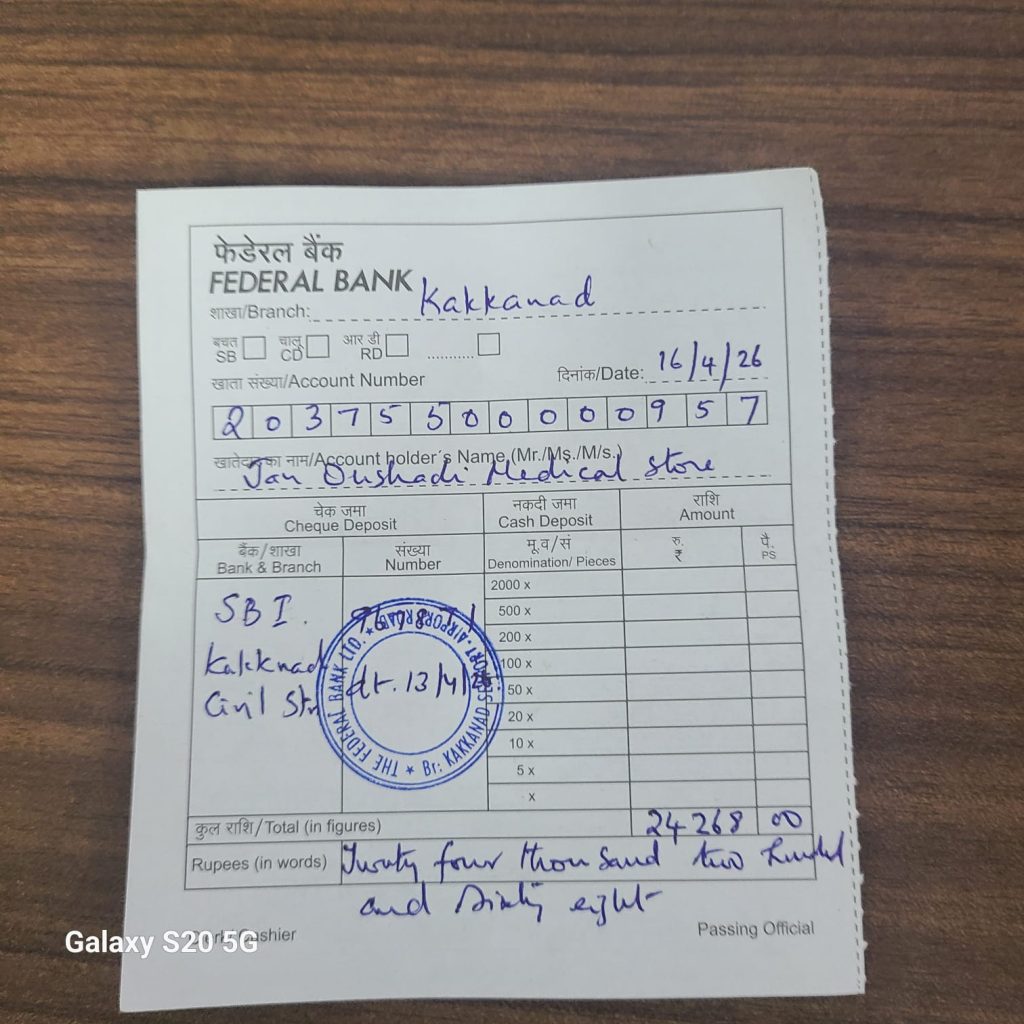 फेडेरल बैंक
FEDERAL BANK
शाखा/Branch: Kakkanad
बचत SB चालू CD आर डी RD ...........
दिनांक/Date: 16/4/26
खाता संख्या/Account Number
2 0 3 7 5 5 0 0 0 0 0 9 5 7
खातेदार का नाम/Account holder's Name (Mr./Ms./M/s.)
Jan Oushadi Medical Store
चेक जमा नकदी जमा राशि
Cheque Deposit Cash Deposit Amount
बैंक/शाखा संख्या मू.व/सं रु. पै.
Bank & Branch Number Denomination/ Pieces ₹ PS
2000 x
SBI. 500 x
200 x
Kakknad 100 x
dt. 13/4/26 50 x
Civil Stn 20 x
10 x
5 x
x
THE FEDERAL BANK LTD. ★ Br: KAKKANAD SEAPORT - AIRPORT ROAD ★
कुल राशि/Total (in figures) 24268 00
Rupees (in words) Twenty four thousand two hundred
and Sixty eight
Cashier Passing Official
Galaxy S20 5G